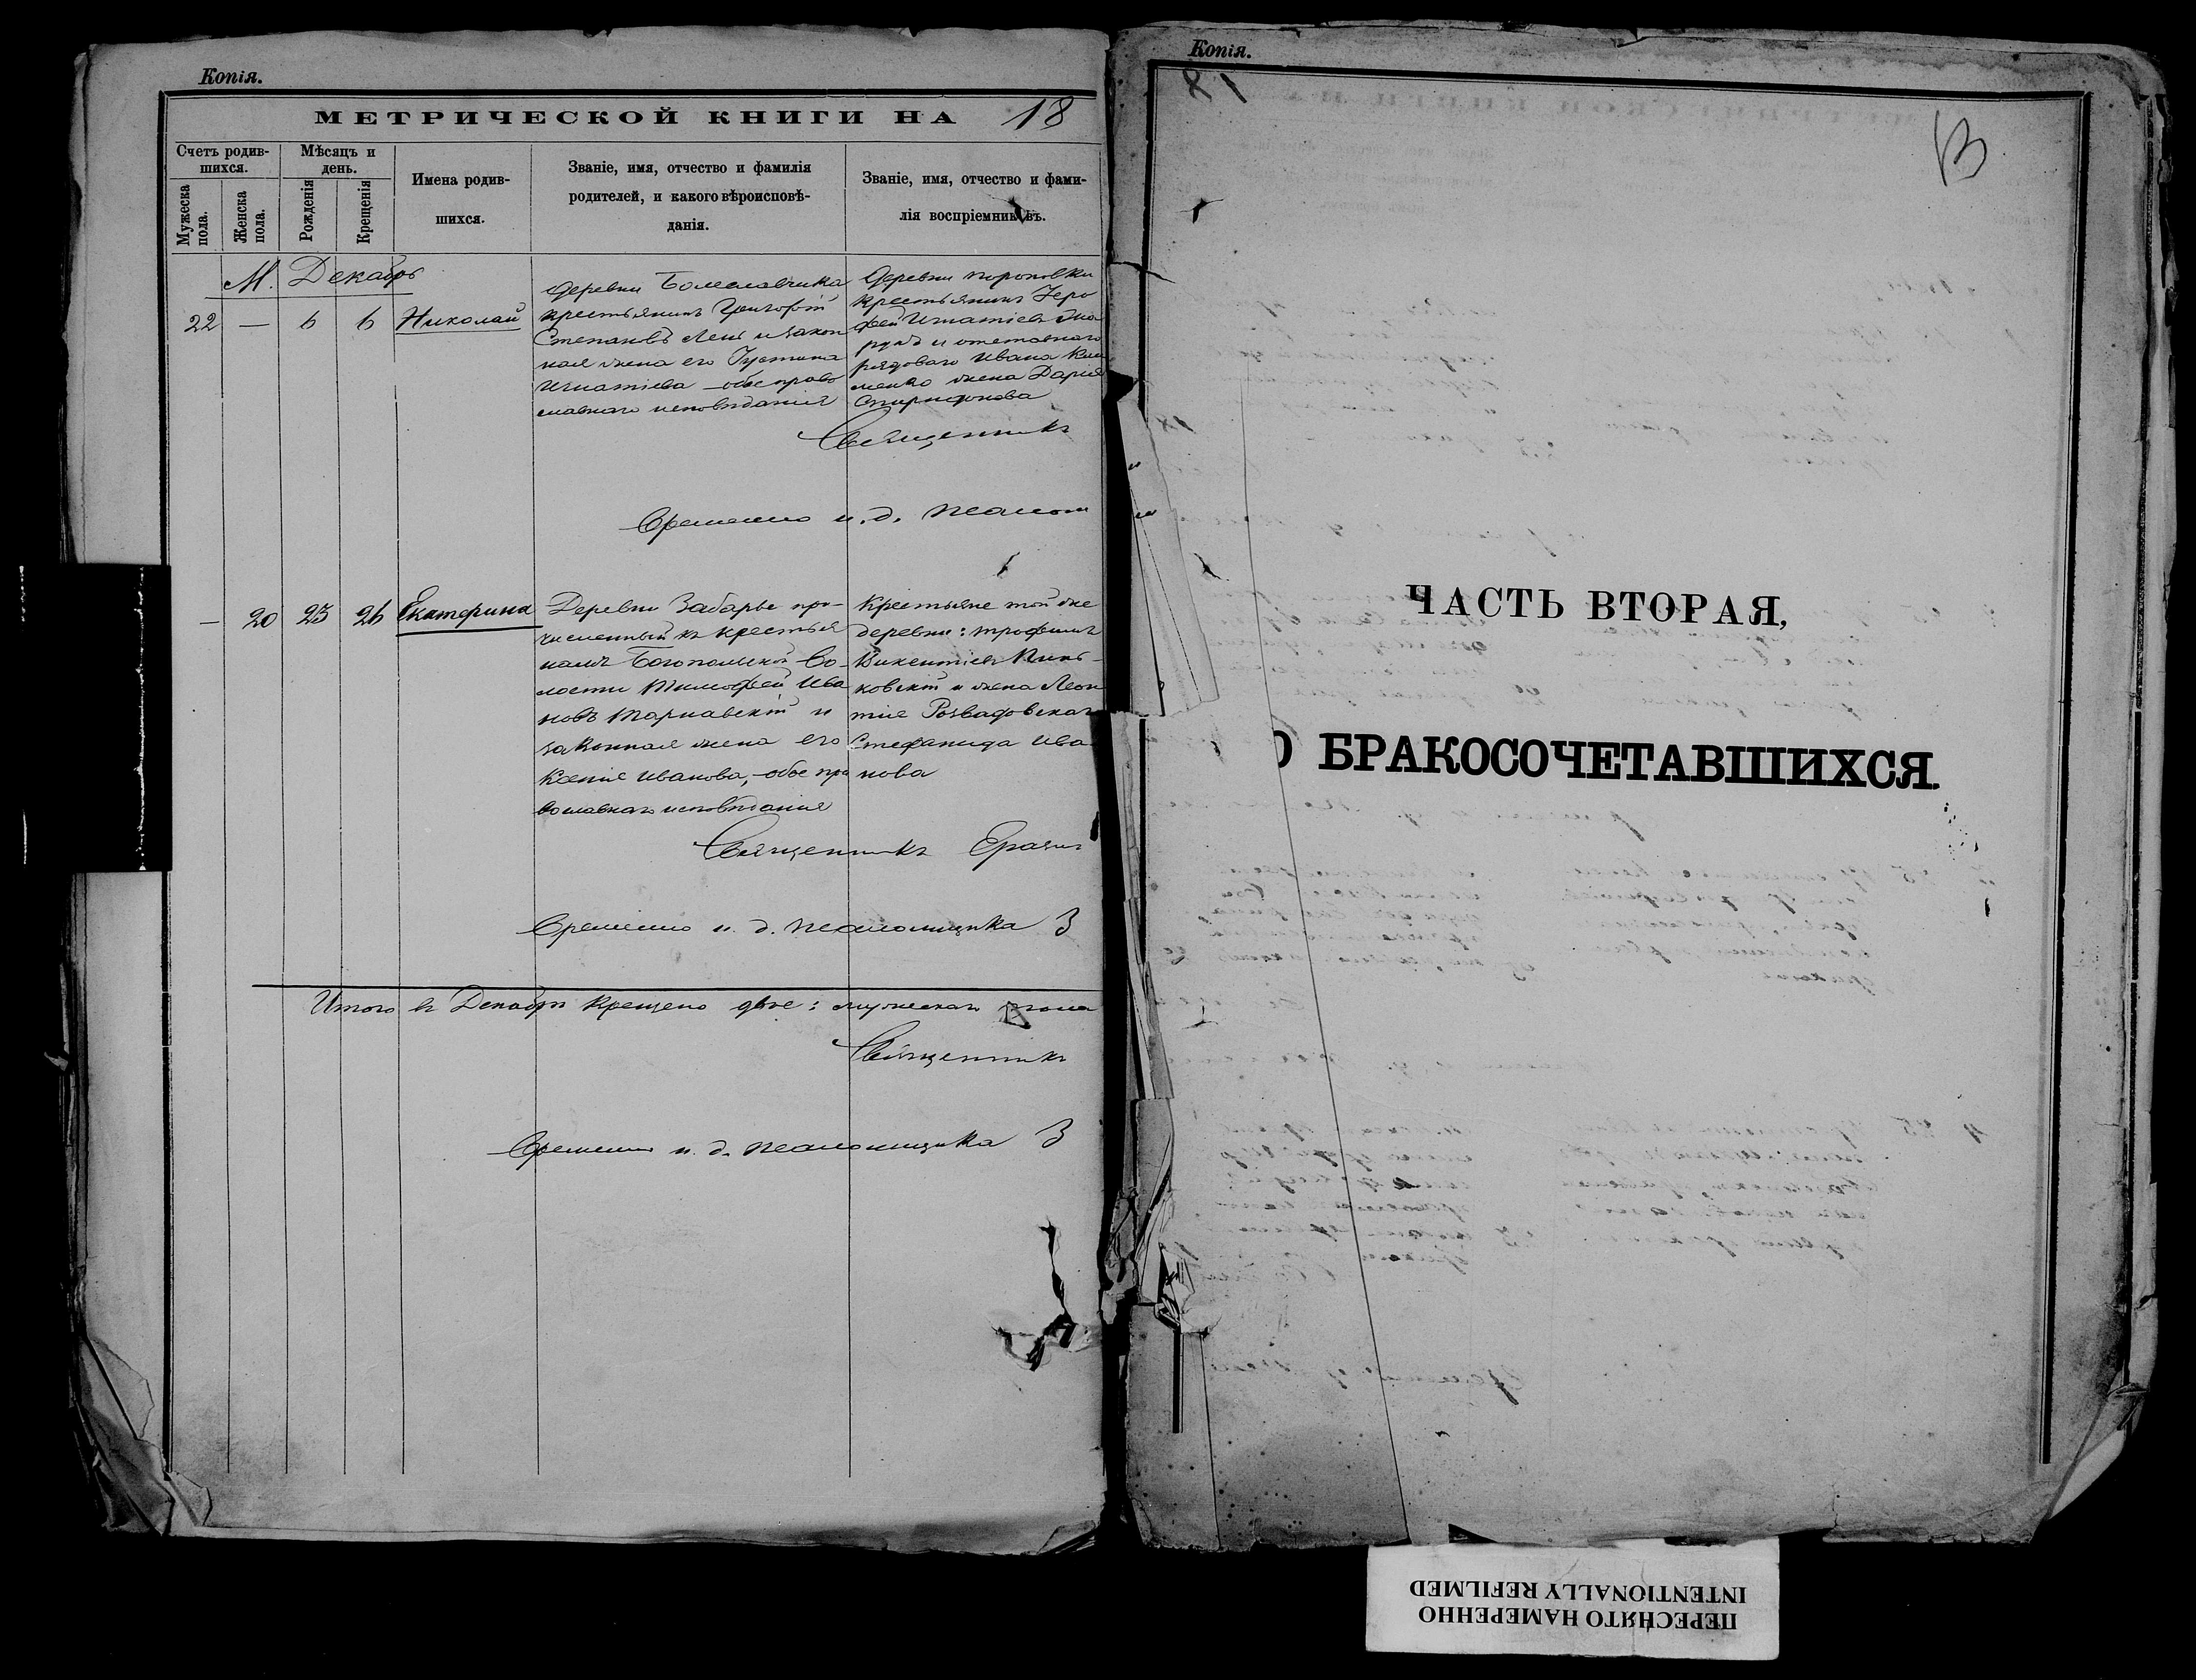 Копія.
МЕТРИЧЕСКОЙ КНИГИ НА 18
Счетъ родив-
шихся.
Мужеска
пола.
Женска
пола.
Мѣсяцъ и
день.
Рожденія
Крещенія
Имена родив-
шихся.
Званіе, имя, отчество и фамилія
родителей, и какого вѣроисповѣ-
данія.
Званіе, имя, отчество и фами-
лія воспріемниковъ.
М. Декабрь
22 — 6 6 Николай
Деревни Болеславчика
крестьянинъ Григорій
Степановъ Лень и закон
ная жена его Іустина
Игнатіева – обое право
славнаго исповѣданія
Деревни
крестьянинъ Іеро
фей Игнатіевъ
и отставнаго
рядоваго Ивана
жена Дарія
Спиридонова
Священникъ
Временно и. д. псалом
— 20 25 26 Екатерина
Деревни Забарье при-
численный къ крестья
намъ Богопольской Во-
лости Тимофей Ива
новъ Тарнавскій и
законная жена его
Ксенія Иванова, – обое пра
вославнаго исповѣданія
Крестьяне той же
деревни: Трофимъ
Викентіевъ
ковскій и жена Леон
тія Розвадовскаго
Стефанида Ива
нова
Священникъ
Временно и. д. псаломщика З
Итого въ Декабрѣ крещено двое: мужескаго пола
Священникъ
Временно и. д. псаломщика З
Копія.
ЧАСТЬ ВТОРАЯ,
О БРАКОСОЧЕТАВШИХСЯ.
ПЕРЕСНЯТО НАМЕРЕННО
INTENTIONALLY REFILMED